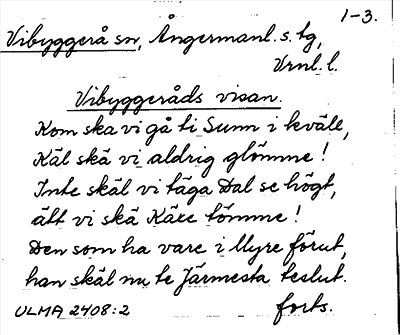 1-3.
Vibyggerå sn, Ångermanl. s. tg,
Vrnl. l.
Vibyggeråds visan.
Kom ska vi gå ti Sunn i kväle,
Käl skä vi aldrig glömme!
Inte skäl vi täga Dal se högt,
ätt vi skä Käxe tömme!
Den som ha vare i Myre förut,
han skäl nu te Järmesta teslut.
ULMA 2408:2 forts.